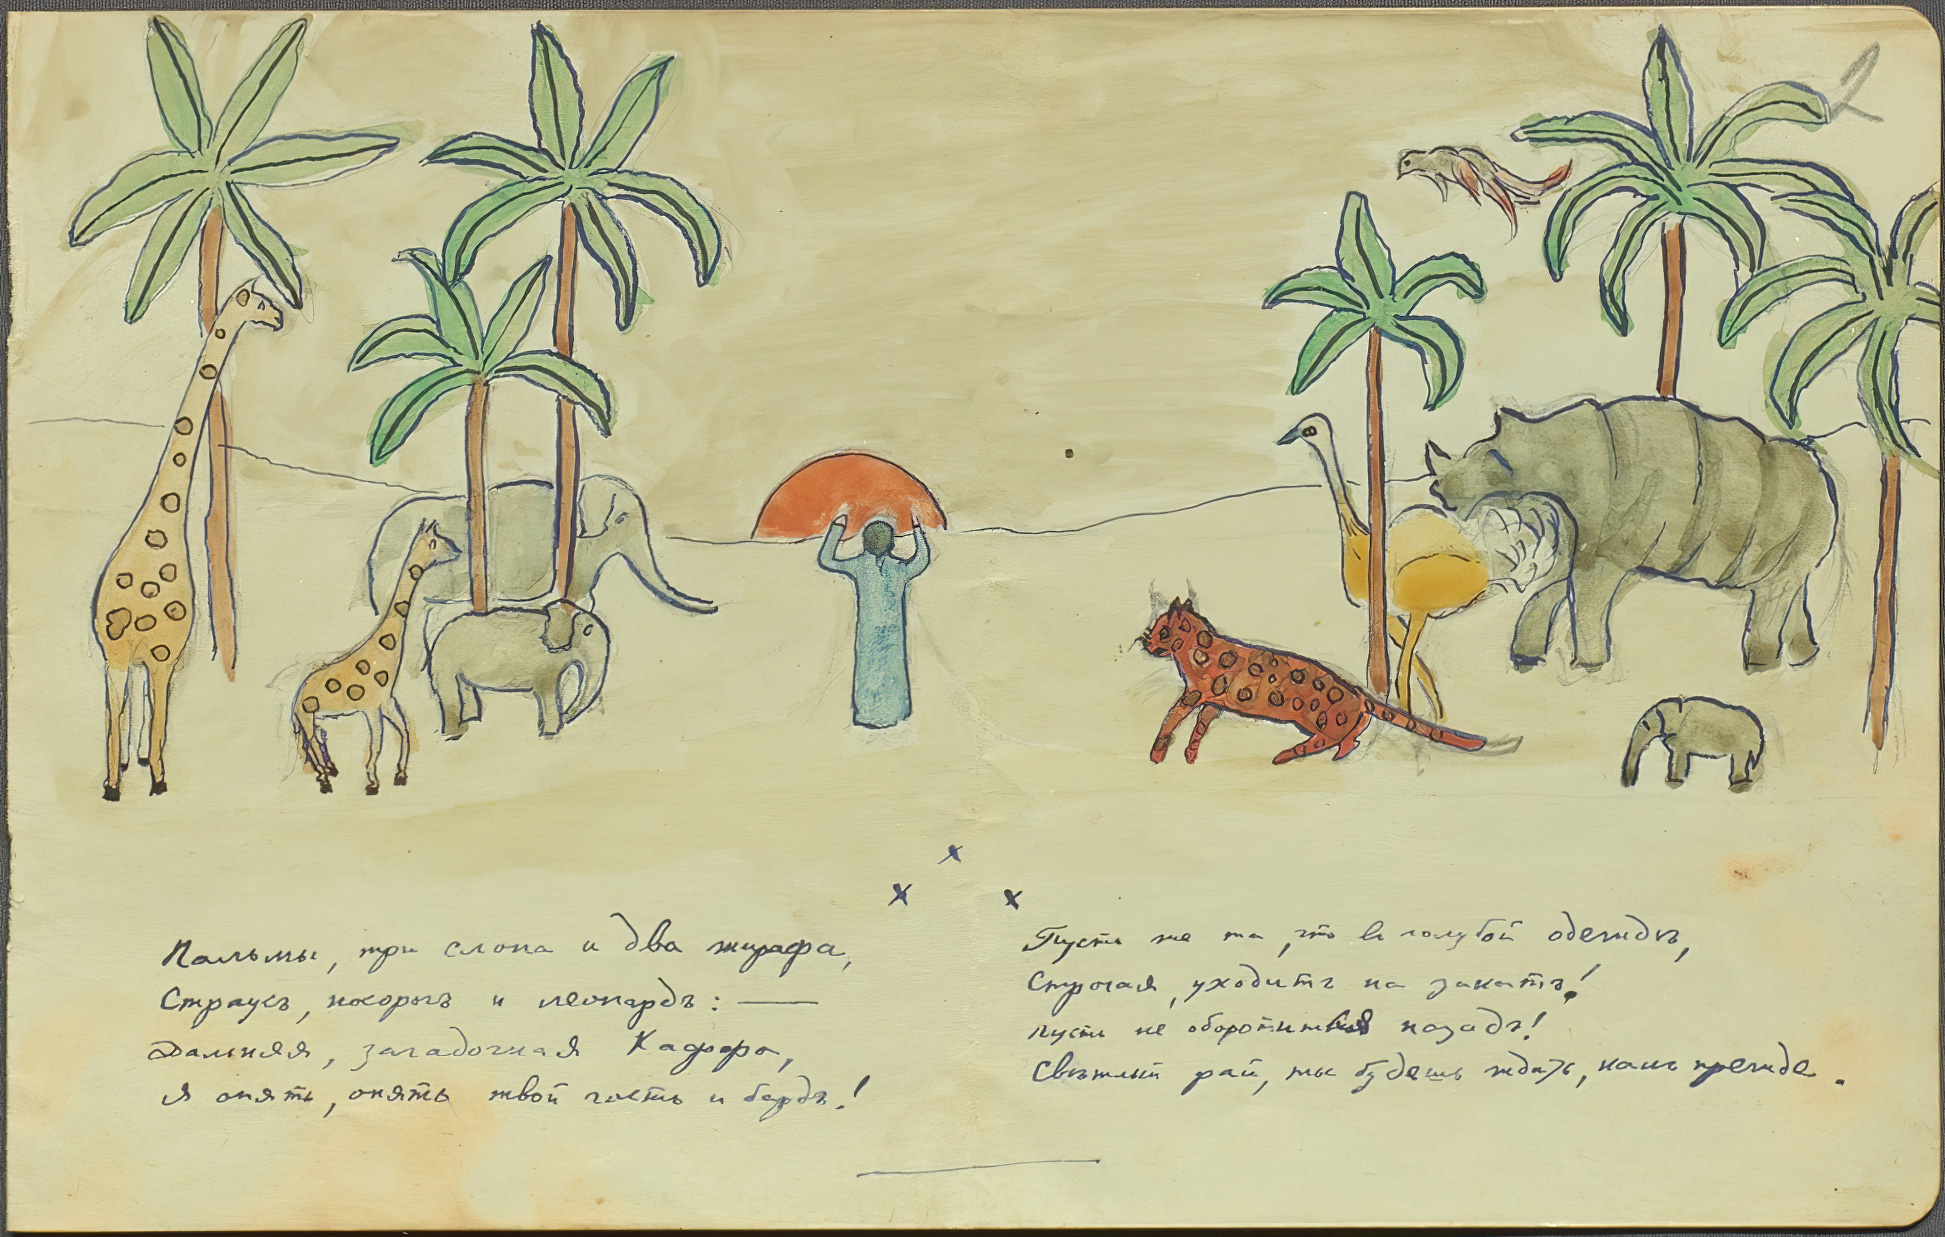 x
x x
Пальмы, три слона и два жирафа,
Страусъ, носорогъ и леопардъ: —
Дальняя, загадочная Каффа,
Я опять, опять твой гость и бардъ!
Пусть же та, что в голубой одеждѣ,
Строгая, уходитъ на закатъ!
Пусть не оборотится назадъ!
Свѣтлый рай, ты будешь ждать, какъ прежде.